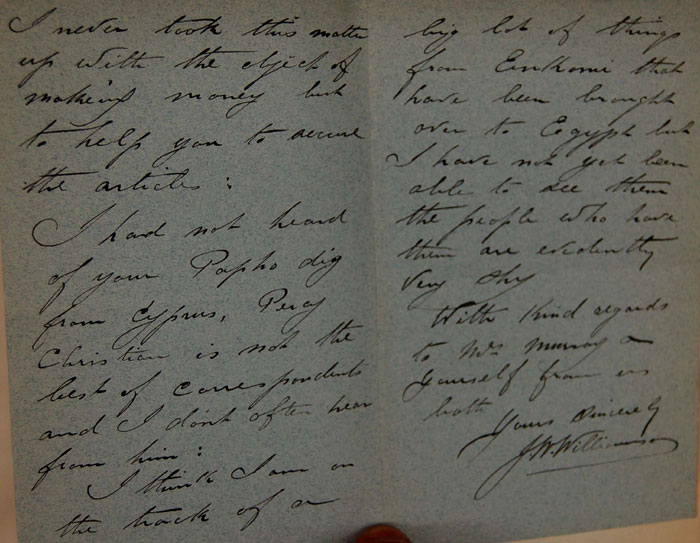 I never took this matter
up with the object of
making money but
to help you to secure
the articles:
I had not heard
of your Papho dig
from Cyprus, Percy
Christian is not the
best of correspondents
and I don't often hear
from him:
I think I am on
the track of a
big lot of things
from Enkomi that
have been brought
over to Egypt but
I have not yet been
able to see them
the people who have
them are evidently
very shy
With Kind regards
to Mrs Murray &
Yourself from us
both
Yours Sincerely
J. W. Williamson